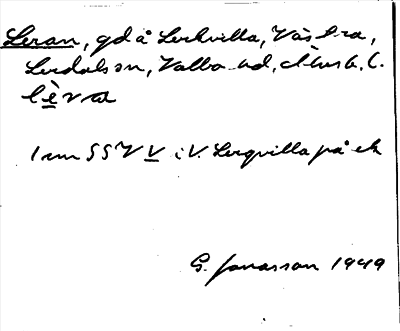 Leran, gd å Lerkvilla, Västra,
Lerdalsön, Valbo hd, Älvsb. l.
lèva
1 cm SSV V i V. Lergvilla på ek
G. Jonasson 1949